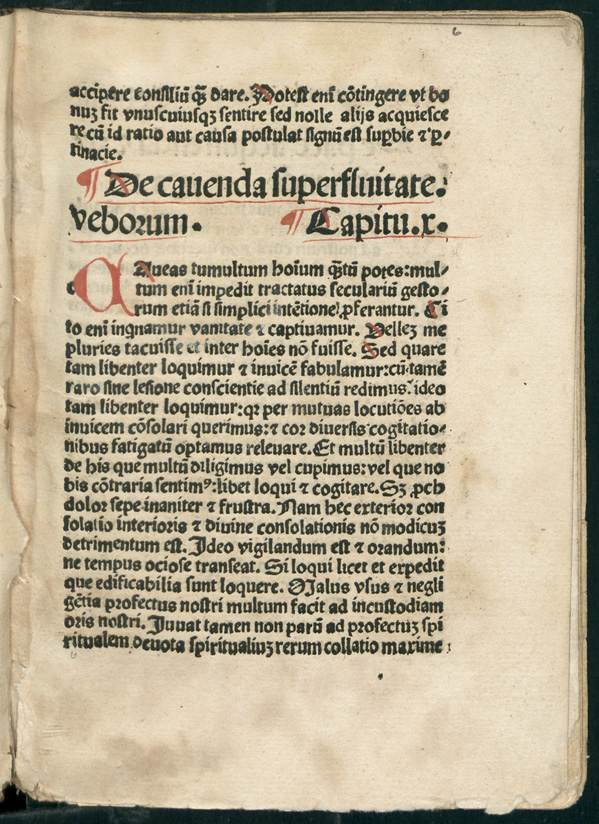 6
accipere consiliū qȝ dare. Potest enī cōtingere vt bo
nuȝ sit vnuscuiusqȝ sentire sed nolle alijs acquiesce
re cū id ratio aut causa postulat signū est supbie ⁊ p-
tinacie.
¶ De cauenda superfluitate.
veborum. ¶ Capitu.x.
CAueas tumultum hoīum qȝtū potes:mul-
tum enī impedit tractatus seculariū gesto-
rum etiā si simplici intētione ꝓferantur. Ci
to enī inqnamur vanitate ⁊ captiuamur. Velleȝ me
pluries tacuisse et inter hoīes nō fuisse. Sed quare
tam libenter loquimur ⁊ inuicē fabulamur:cū tamē
raro sine lesione conscientie ad silentiū redimus? ideo
tam libenter loquimur:qꝛ per mutuas locutiōes ab
inuicem cōsolari querimus:⁊ cor diuersis cogitatio-
nibus fatigatū optamus releuare. Et multū libenter
de his que multū diligimus vel cupimus:vel que no
bis cōtraria sentimꝰ:libet loqui ⁊ cogitare. Sȝ ꝓch
dolor sepe inaniter ⁊ frustra. Nam hec exterior con
solatio interioris ⁊ diuine consolationis nō modicuȝ
detrimentum est. Ideo vigilandum est ⁊ orandum:
ne tempus ociose transeat. Si loqui licet et expedit
que edificabilia sunt loquere. Malus vsus ⁊ negli
gētia profectus nostri multum facit ad incustodiam
oris nostri. Juuat tamen non parū ad profectuȝ spi
ritualem deuota spiritualiuȝ rerum collatio maxime